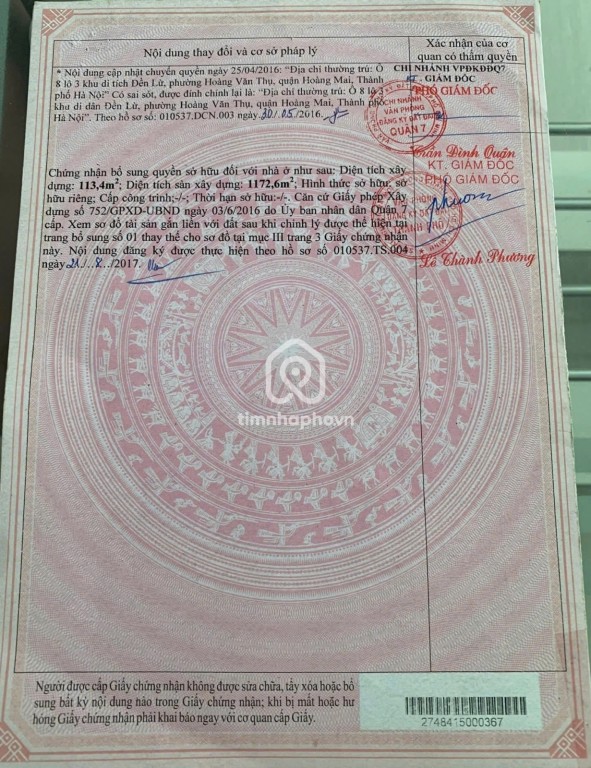 Nội dung thay đổi và cơ sở pháp lý
Xác nhận của cơ
quan có thẩm quyền
* Nội dung cập nhật chuyển quyền ngày 25/04/2016: “Địa chỉ thường trú: Ô
8 lô 3 khu di tích Đền Lừ, phường Hoàng Văn Thụ, quận Hoàng Mai, Thành
phố Hà Nội” Có sai sót, được đính chính lại là: “Địa chỉ thường trú: Ô 8 lô 3
khu di dân Đền Lừ, phường Hoàng Văn Thụ, quận Hoàng Mai, Thành phố
Hà Nội”. Theo hồ sơ số: 010537.DCN.003 ngày 30/05/2016.
CHI NHÁNH VPĐKĐĐQ7
KT. GIÁM ĐỐC
PHÓ GIÁM ĐỐC
CHI NHÁNH
VĂN PHÒNG
ĐĂNG KÝ ĐẤT ĐAI
QUẬN 7
Trần Đình Quận
Chứng nhận bổ sung quyền sở hữu đối với nhà ở như sau: Diện tích xây
dựng: 113,4m²; Diện tích sàn xây dựng: 1172,6m²; Hình thức sở hữu: sở
hữu riêng; Cấp công trình:-/-; Thời hạn sở hữu:-/-. Căn cứ Giấy phép Xây
dựng số 752/GPXD-UBND ngày 03/6/2016 do Ủy ban nhân dân Quận 7
cấp. Xem sơ đồ tài sản gắn liền với đất sau khi chỉnh lý được thể hiện tại
trang bổ sung số 01 thay thế cho sơ đồ tại mục III trang 3 Giấy chứng nhận
này. Nội dung đăng ký được thực hiện theo hồ sơ số 010537.TS.004
ngày 21./.8../2017.
KT. GIÁM ĐỐC
PHÓ GIÁM ĐỐC
Lê Thành Phương
timnhapho.vn
Người được cấp Giấy chứng nhận không được sửa chữa, tẩy xóa hoặc bổ
sung bất kỳ nội dung nào trong Giấy chứng nhận; khi bị mất hoặc hư
hỏng Giấy chứng nhận phải khai báo ngay với cơ quan cấp Giấy.
2748415000367